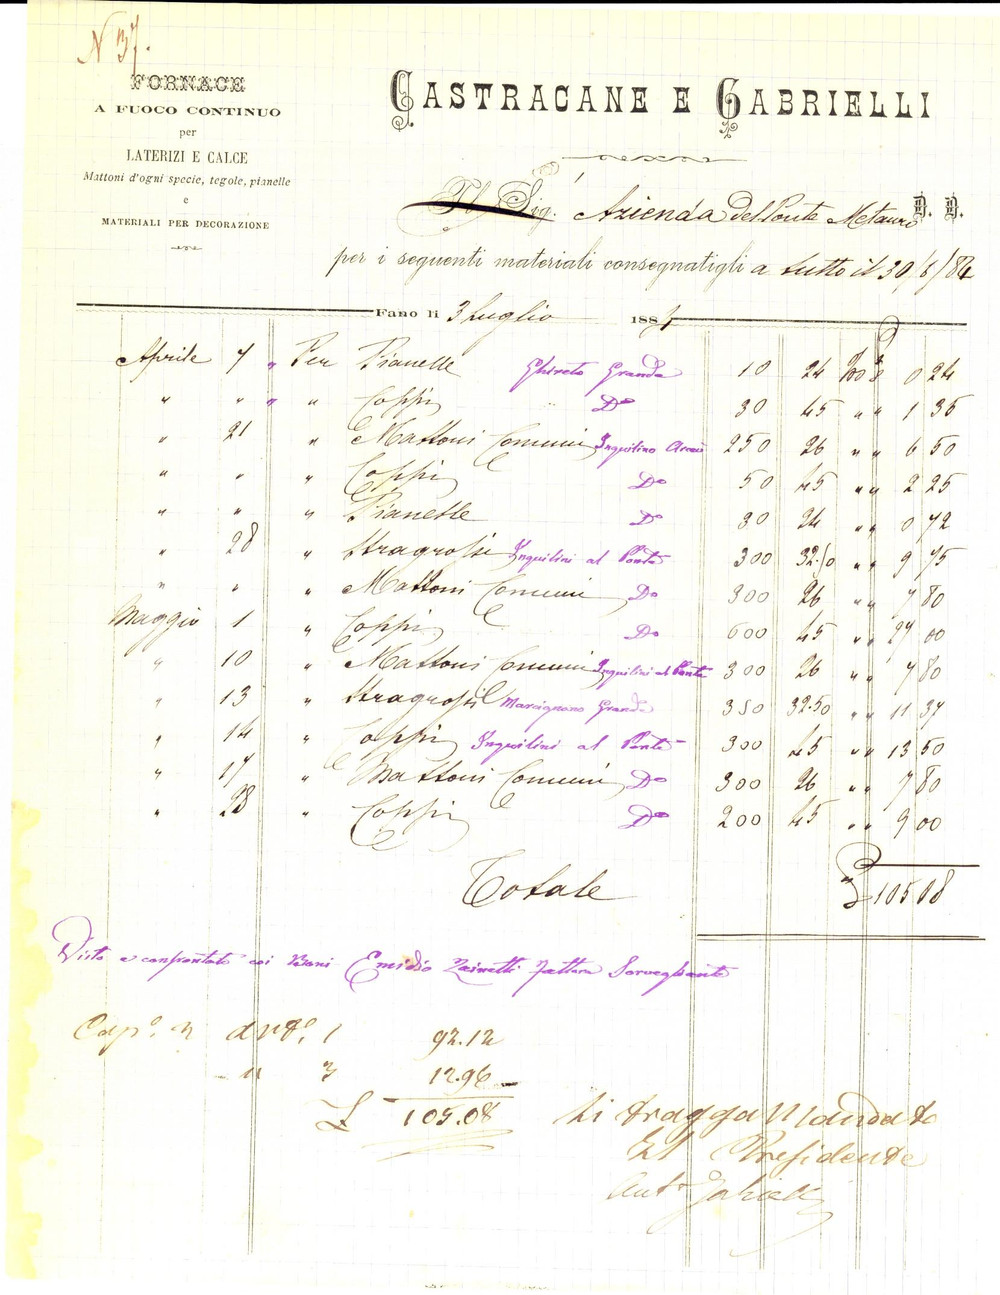 N 37.
FORNACE
A FUOCO CONTINUO
per
LATERIZI E CALCE
Mattoni d'ogni specie, tegole, pianelle
e
MATERIALI PER DECORAZIONE
CASTRACANE E GABRIELLI
Sig. Azienda Del Ponte Metauro D. D.
per i seguenti materiali consegnatigli a tutto il 30/6/84
Fano li 3 Luglio 1884
Aprile 7 " Per Pianelle Ghireto Grande 10 24 0 24
" " " " Coppi Do 30 45 " " 1 35
" 21 " Mattoni Comuni Inquilino 250 26 " " 6 50
" " " Coppi Do 50 45 " " 2 25
" " " Pianelle Do 30 24 " " 0 72
" 28 " Stragrossi Inquilini al Ponte 300 32.50 " " 9 75
" " " Mattoni Comuni Do 300 26 " " 7 80
Maggio 1 " Coppi Do 600 45 " " 27 00
" 10 " Mattoni Comuni Inquilini al Ponte 300 26 " " 7 80
" 13 " Stragrossi Marcignano Grande 350 32.50 " " 11 37
" 14 " Coppi Inquilini al Ponte 300 45 " " 13 50
" 17 " Mattoni Comuni Do 300 26 " " 7 80
" 28 " Coppi Do 200 45 " " 9 00
Totale £ 105 08
Visto e confrontato coi Boni Emidio Zainetti Fattore Sorvegliante
Cap.o 2 art.o 1 92.12
" 3 12.96
£ 105.08
Si stragga Mandato
Il Presidente
Ant.o Gabrielli